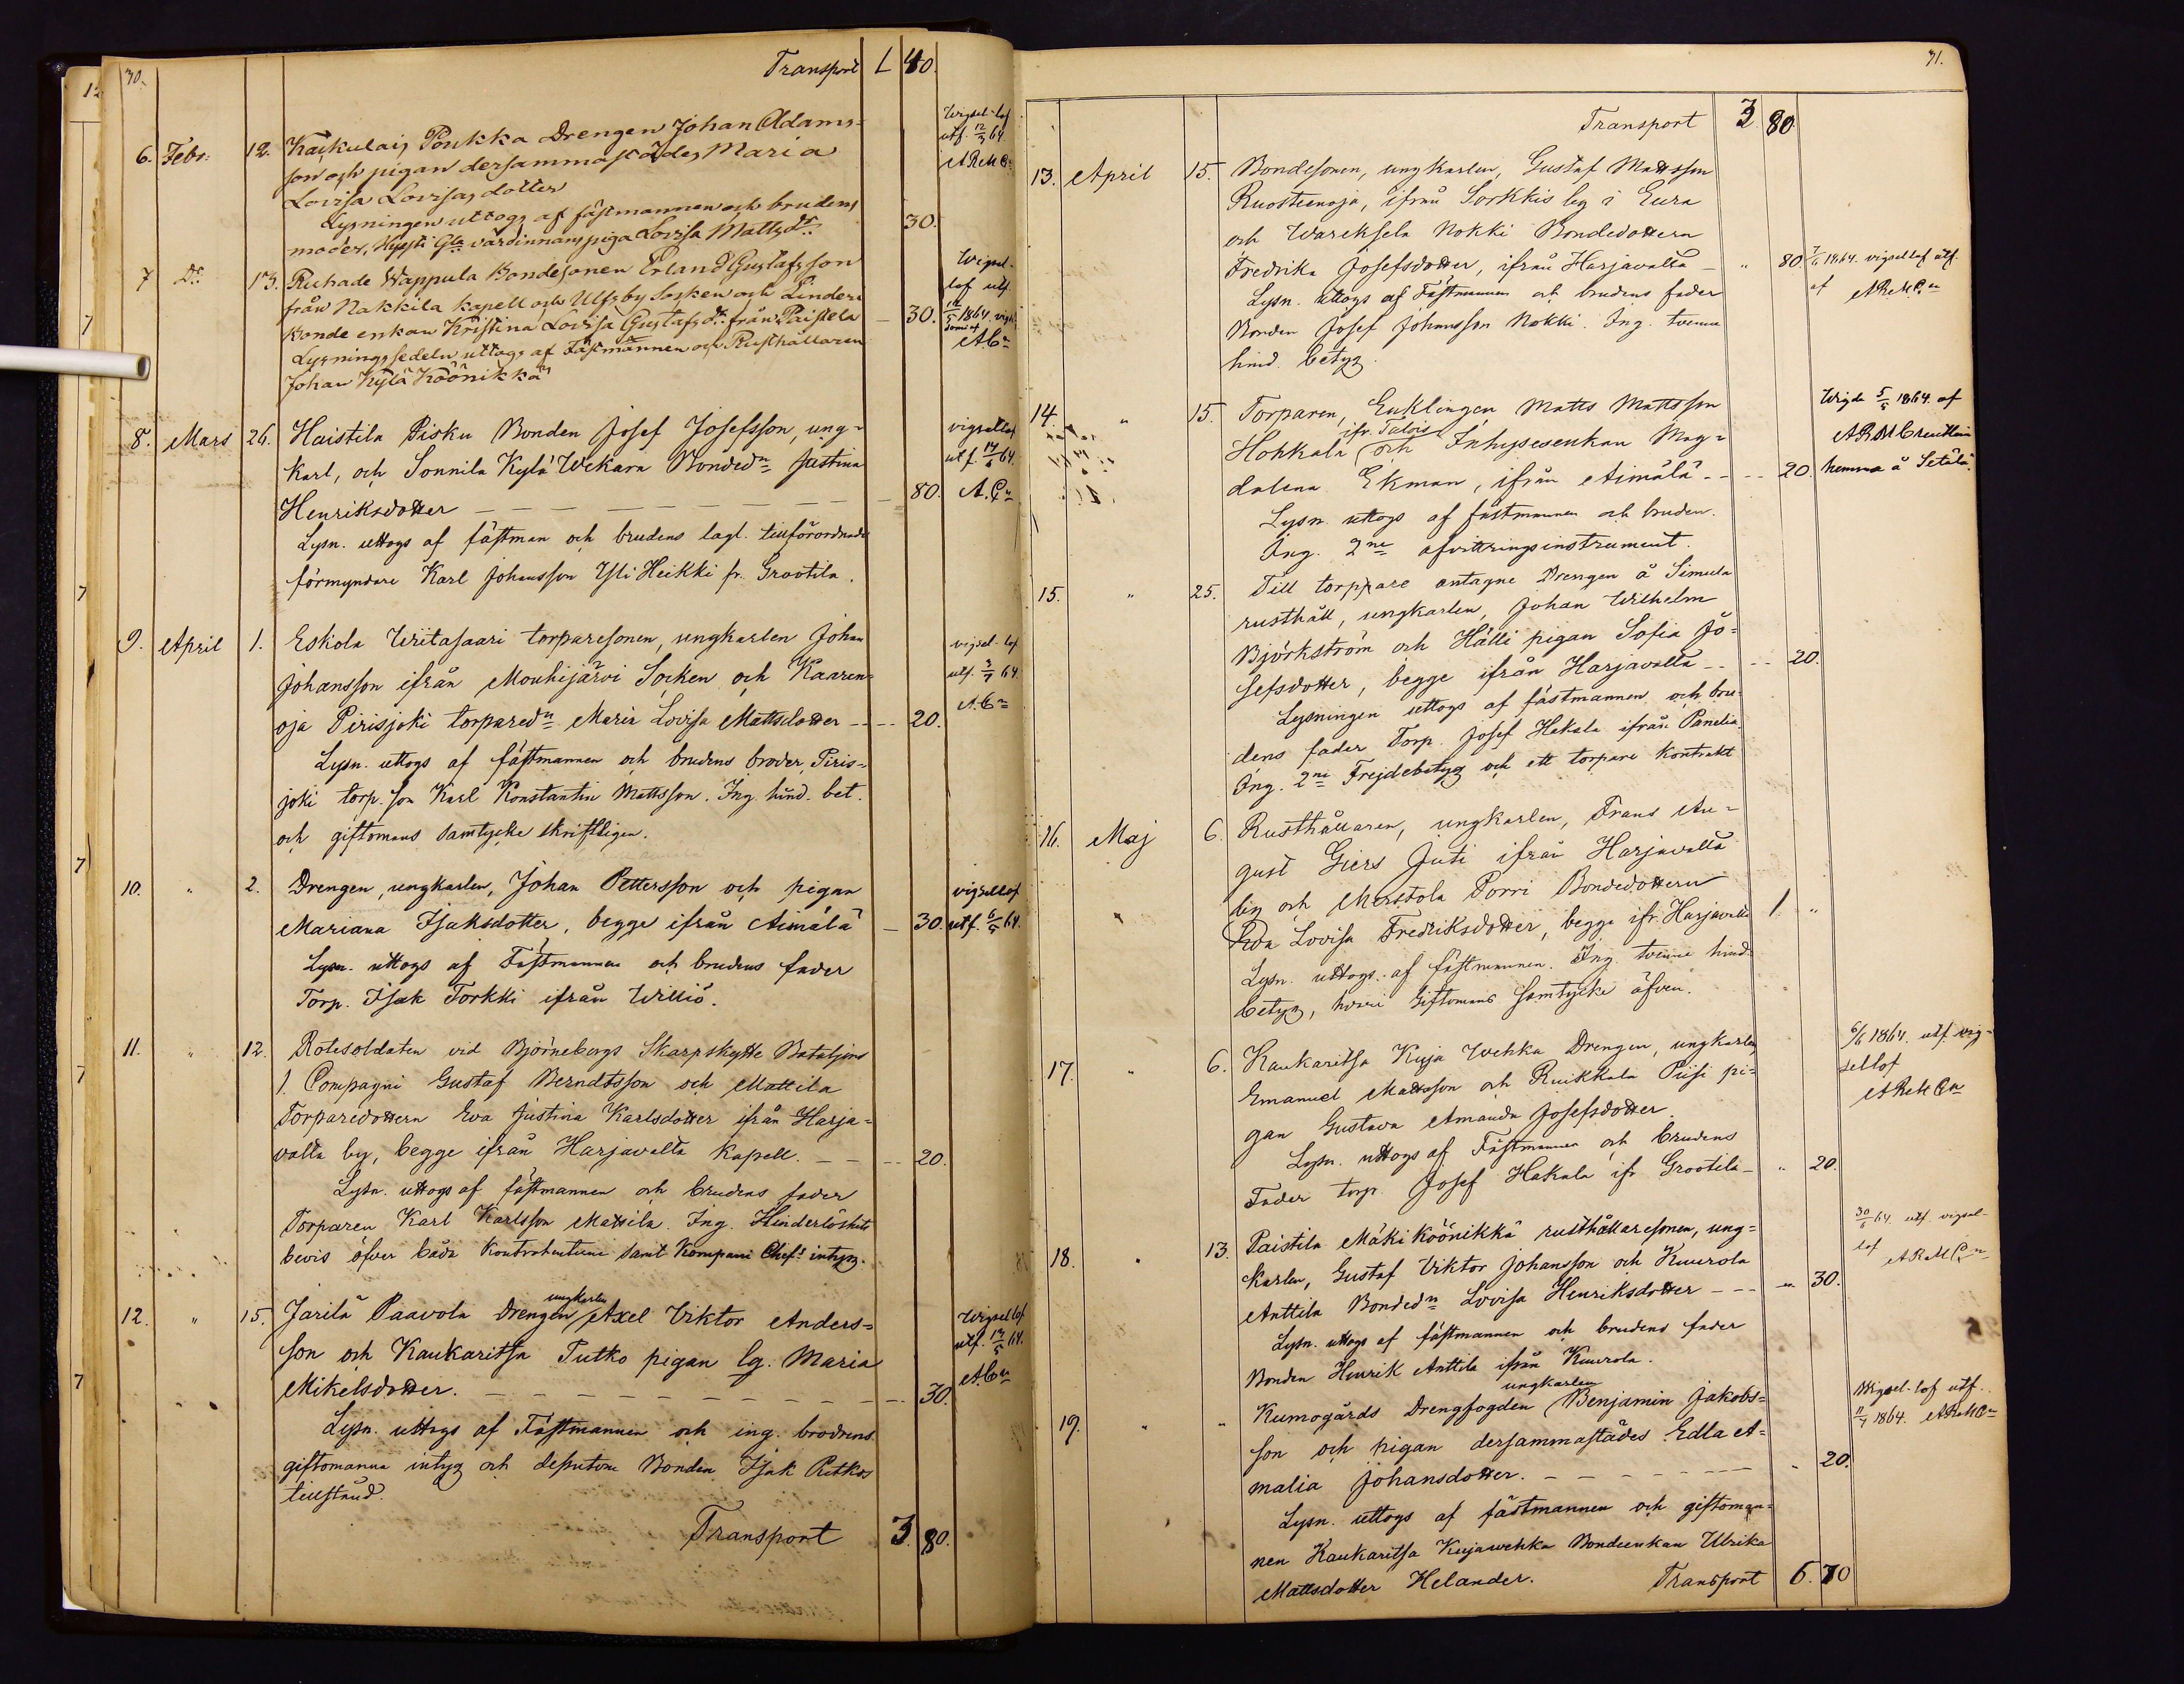 70.
Transport 1 40.
6. Febr: 12. Kaukulais Poukka Drengen Johan Adams=
son och pigan dersammastädes Maria
Lovisa Lovisasdotter
Lysningen uttogs af fästmannen och brudens 30.
moder, Hyysti Gla värdinnans piga Lovisa Mattsdr.
Wigsel-lof
utf. 12/3 64.
7 Do: 13. Ruhade Wappula Bondesonen Erland Gustafsson
från Nakkila kapell och Ulfsby Socken och Linderi
Bonde enkan Kristina Lovisa Gustafsdr. från Paistila — 30.
Lysningssedeln uttogs af Fästmannen och Rusthållaren
Johan Kylä Köönikkä
Wigsel-
lof utf.
12/5 1864.
8. Mars 26. Haistila Pisku Bonden Josef Josefsson, ung=
karl, och Sonnila Kylä Wekara Bondedn Justina
Henriksdotter — — — 80.
Lysn. uttogs af fästman och brudens lagl. tillförordnade
förmyndare Karl Johansson Yli Heikki fr. Grootila.
vigsellof
utf. 17/6 64.
9. April 1. Eskola Wiitasaari torparesonen, ungkarlen Johan
Johansson ifrån Mouhijärvi Socken och Kaaren=
oja Pirisjoki torparedn Maria Lovisa Mattsdotter — 20.
Lysn. uttogs af fästmannen och brudens broder, Piris=
joki torp. son Karl Konstantin Mattsson. Ing. hind. bet.
och giftomans samtycke skriftligen.
vigsel-lof
utf. 3/7 64.
10. " 2. Drengen, ungkarlen, Johan Pettersson och pigan
Mariana Isaksdotter, begge ifrån Aimälä — 30.
Lysn. uttogs af Fästmannen och brudens fader
Torp. Isak Torkki ifrån Williö.
vigsellof
utf. 6/5 64.
11. " 12. Rotesoldaten vid Björneborgs Skarpskytte Bataljons
1. Compagni Gustaf Berndtsson och Mattila
Torparedottern Eva Justina Karlsdotter ifrån Harja=
valta by, begge ifrån Harjavalta Kapell. — 20.
Lysn. uttogs af fästmannen och brudens fader
Torparen Karl Karlsson Mattila. Ing. Hinderlöshets
bevis öfver båda Kontrahenterne samt Kompani Chefs intyg.
12. " 15. Jarilä Paavola Drengen ungkarlen Axel Viktor Anders=
son och Kaukaritsa Tutko pigan lg. Maria
Mikelsdotter. — — — 30.
Lysn. uttogs af Fästmannen och ing. brodrens
giftomanna intyg och Bonden Isak
tillstånd.
Wigsellof
utf. 64.
Transport 3. 80.
71.
Transport 3 80.
13. April 15. Bondesonen, ungkarlen, Gustaf Mattsson
Ruostenoja, ifrån Sorkkis by i Eura
och Wareksela Nokki Bondedottern
Fredrika Josefsdotter, ifrån Harjavalta — " 80.
Lysn. uttogs af Fästmannen och brudens fader
Bonden Josef Johansson Nokki. Ing. tvenne
hind. betyg.
7/6 1864. vigsellof utf.
af
14. " 15. Torparen, Enklingen Matts Mattsson
Hohkala ifr. Talois och Inhysesenkan Mag=
dalena Ekman, ifrån Aimälä — 20.
Lysn. uttogs af fästmannen och bruden.
Ing. 2ne afvittringsinstrument.
Wigde 5/5 1864. af
hemma å Setälä.
15. " 25. Till torppare antagne Drengen å Simula
rusthåll, ungkarlen, Johan Wilhelm
Björkström och Hälli pigan Sofia Jo=
sefsdotter, begge ifrån Harjavalta — 20.
Lysningen uttogs af fästmannen och bru=
dens fader Torp. Josef Hakala ifrån Panelia.
Ing. 2ne Frejdebetyg och ett torpare Kontrakt
16. Maj 6. Rusthållaren, ungkarlen, Frans Au=
gust Giers Juti ifrån Harjavalta
by och Merstola Porri Bondedottern
Eva Lovisa Fredriksdotter, begge ifr. Harjavalta 1. "
Lysn. uttogs af fästmannen. Ing. tvenne hind.
betyg, hvari Giftomans samtycke äfven.
17. " 6. Kaukaritsa Kuja Wehka Drengen, ungkarlen
Emanuel Mattsson och Ruikkala Piisi pi=
gan Gustava Amanda Josefsdotter.
Lysn. uttogs af Fästmannen och brudens
Fader torp. Josef Hakala ifr Grootila — " 20.
6/6 1864. utf. vig=
sellof
18. " 13. Paistila Mäki Köönikkä rusthållaresonen, ung=
karlen, Gustaf Viktor Johansson och Kuurola
Anttila Bondedn Lovisa Henriksdotter — — " 30.
Lysn. uttogs af fästmannen och brudens fader
Bonden Henrik Anttila ifrån Kuurola.
30/6 64. utf. vigsel-
lof
19. " " Kumogårds Drengfogden ungkarlen Benjamin Jakobs=
son och pigan dersammastädes Edla A=
malia Johansdotter. — — — " 20.
Lysn. uttogs af fästmannen och giftoman=
nen Kaukaritsa Kujawehka Bondeenkan Ulrika
Mattsdotter Helander. Transport 6. 70
Wigsel-lof utf.
11/7 1864.